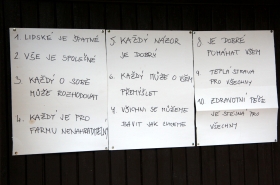 1 LIDSKÉ JE ŠPATNÉ
2 VŠE JE SPOLEČNÉ
3. KAŽDÝ O SOBĚ
MŮŽE ROZHODOVAT
4. KAŽDÝ JE PRO
FARMU NENAHRADITELNÝ
5 KAŽDÝ NÁZOR
JE DOBRÝ
6. KAŽDÝ MŮŽE O VŠEM
PŘEMÝŠLET
7. VŠICHNI SE MŮŽEME
BAVIT JAK CHCEME
8 JE DOBRÉ
POMÁHAT VŠEM
9. TEPLÁ STRAVA
PRO VŠECHNY
10. ZDRAVOTNÍ PÉČE
JE STEJNÁ PRO
VŠECHNY